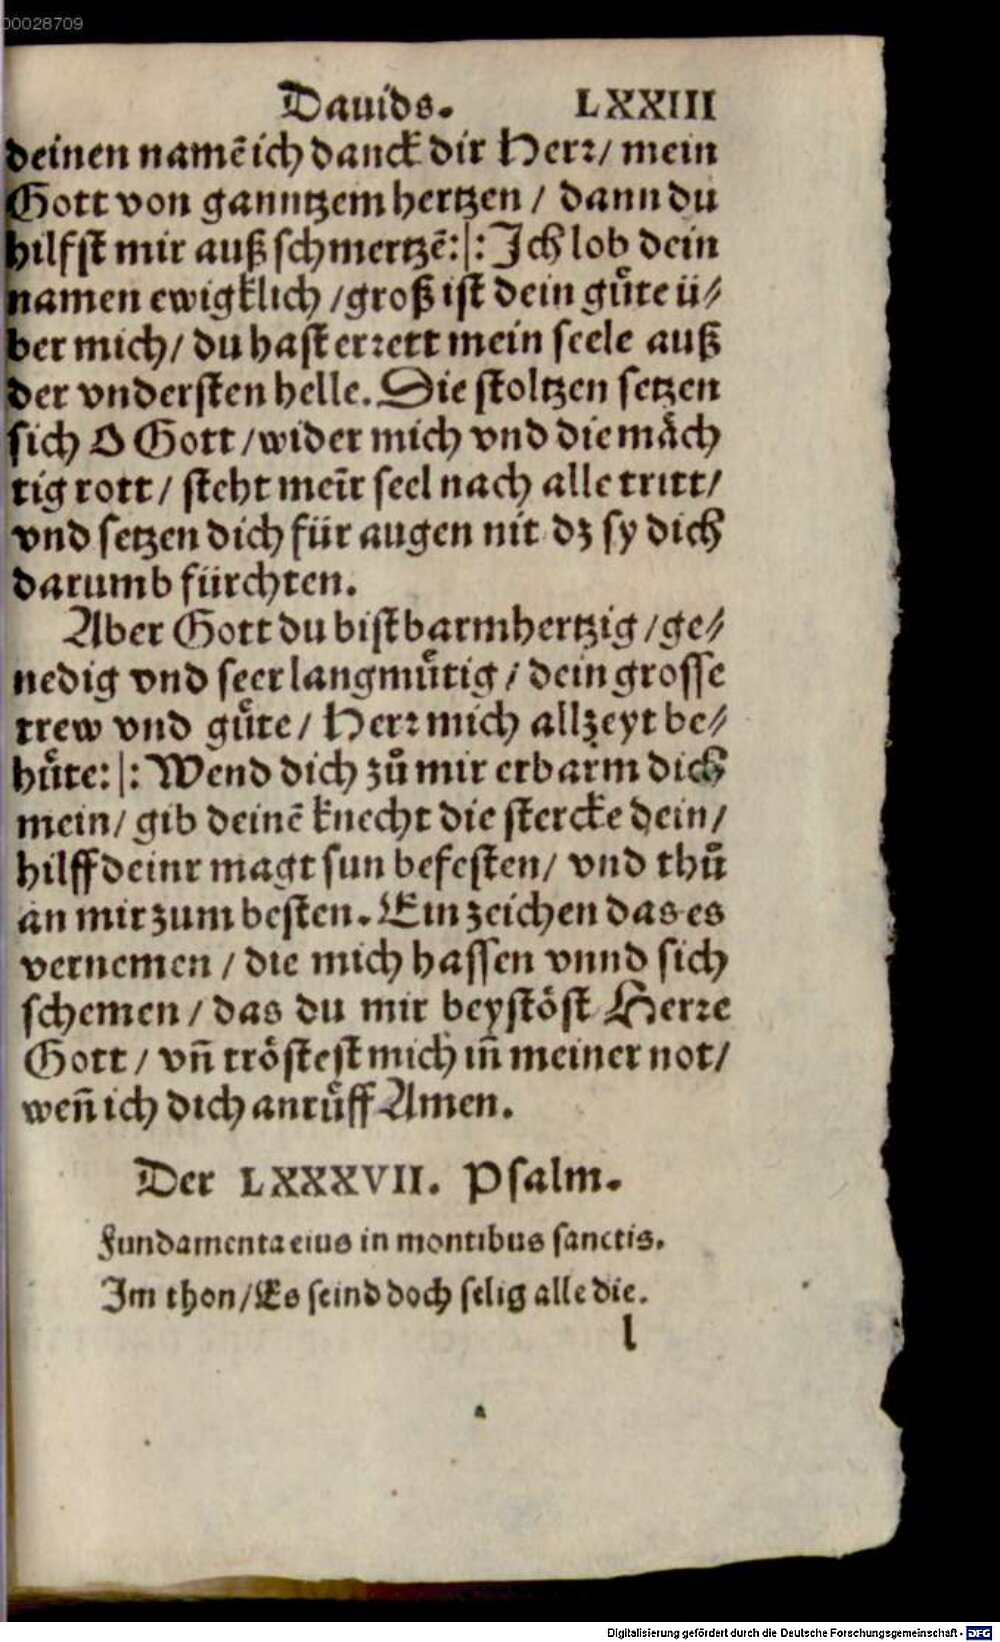 00028709
Dauids. LXXIII
deinen namē ich danck dir Herꝛ/ mein
Gott von ganntzem hertzen / dann du
hilfſt mir auß ſchmertzē:|: Ich lob dein
namen ewigklich /groß iſt dein guͤte ü⸗
ber mich/ du haſt erꝛett mein ſeele auß
der vnderſten helle. Die ſtoltzen ſetzen
ſich O Gott /wider mich vnd die maͤch
tig rott / ſteht meīr ſeel nach alle tritt/
vnd ſetzen dich für augen nit dz ſy dich
darumb fürchten.
Aber Gott du biſt barmhertzig /ge⸗
nedig vnd ſeer langmuͤtig / dein groſſe
trew vnd guͤte/ Herꝛ mich allzeyt be⸗
huͤte:|: Wend dich zuͦ mir erbarm dich
mein/ gib deinē knecht die ſtercke dein/
hilff deinr magt ſun befeſten/ vnd thuͦ
an mir zum beſten. Ein zeichen das es
vernemen / die mich haſſen vnnd ſich
ſchemen / das du mir beyſtöſt Herꝛe
Gott / vn̄ tröſteſt mich in̄ meiner not/
wen̄ ich dich anruͤff Amen.
Der LXXXVII. Pſalm.
Fundamenta eius in montibus ſanctis.
Im thon/Es ſeind doch ſelig alle die.
l
Digitalisierung gefördert durch die Deutsche Forschungsgemeinschaft - DFG